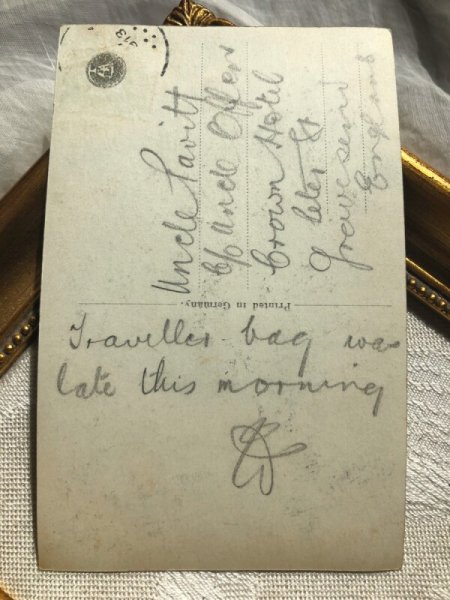 Uncle Pavitt
c/o Uncle Ofen
Crown Hotel
St
Gravesend
England
Printed in Germany.
Traveller bag was
late this morning